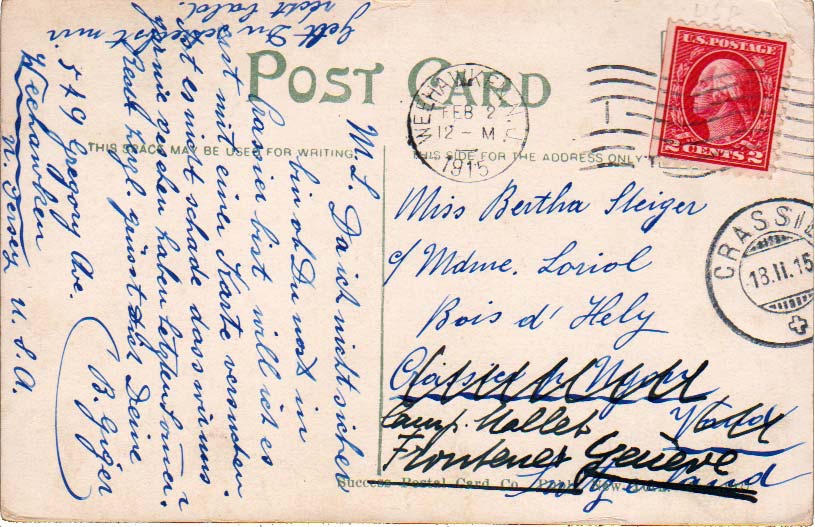 POST CARD
THIS SPACE MAY BE USED FOR WRITING
THIS SIDE FOR THE ADDRESS ONLY
WEEHAWKEN N.J.
FEB 2
12 - M
1915
U.S. POSTAGE
2 CENTS 2
CRASSIE
18.II.15
Miss Bertha Steiger
c/ Mdme. Loriol
Bois d' Hely
Camp. Mallet
Frontenex Genève
Success Postal Card Co.
M. L. Da ich nicht sicher
bin ob Du noch in
Crassier bist will ich es
erst mit einer Karte versuchen.
Ist es nicht schade dass wir uns
nie gesehen haben letzten
Recht herzl. grüsst dich Deine
B. Giger
549 Gregory Ave.
Weehawken
N. Jersey U. S. A.
Gell Du schreibst mir
recht bald.